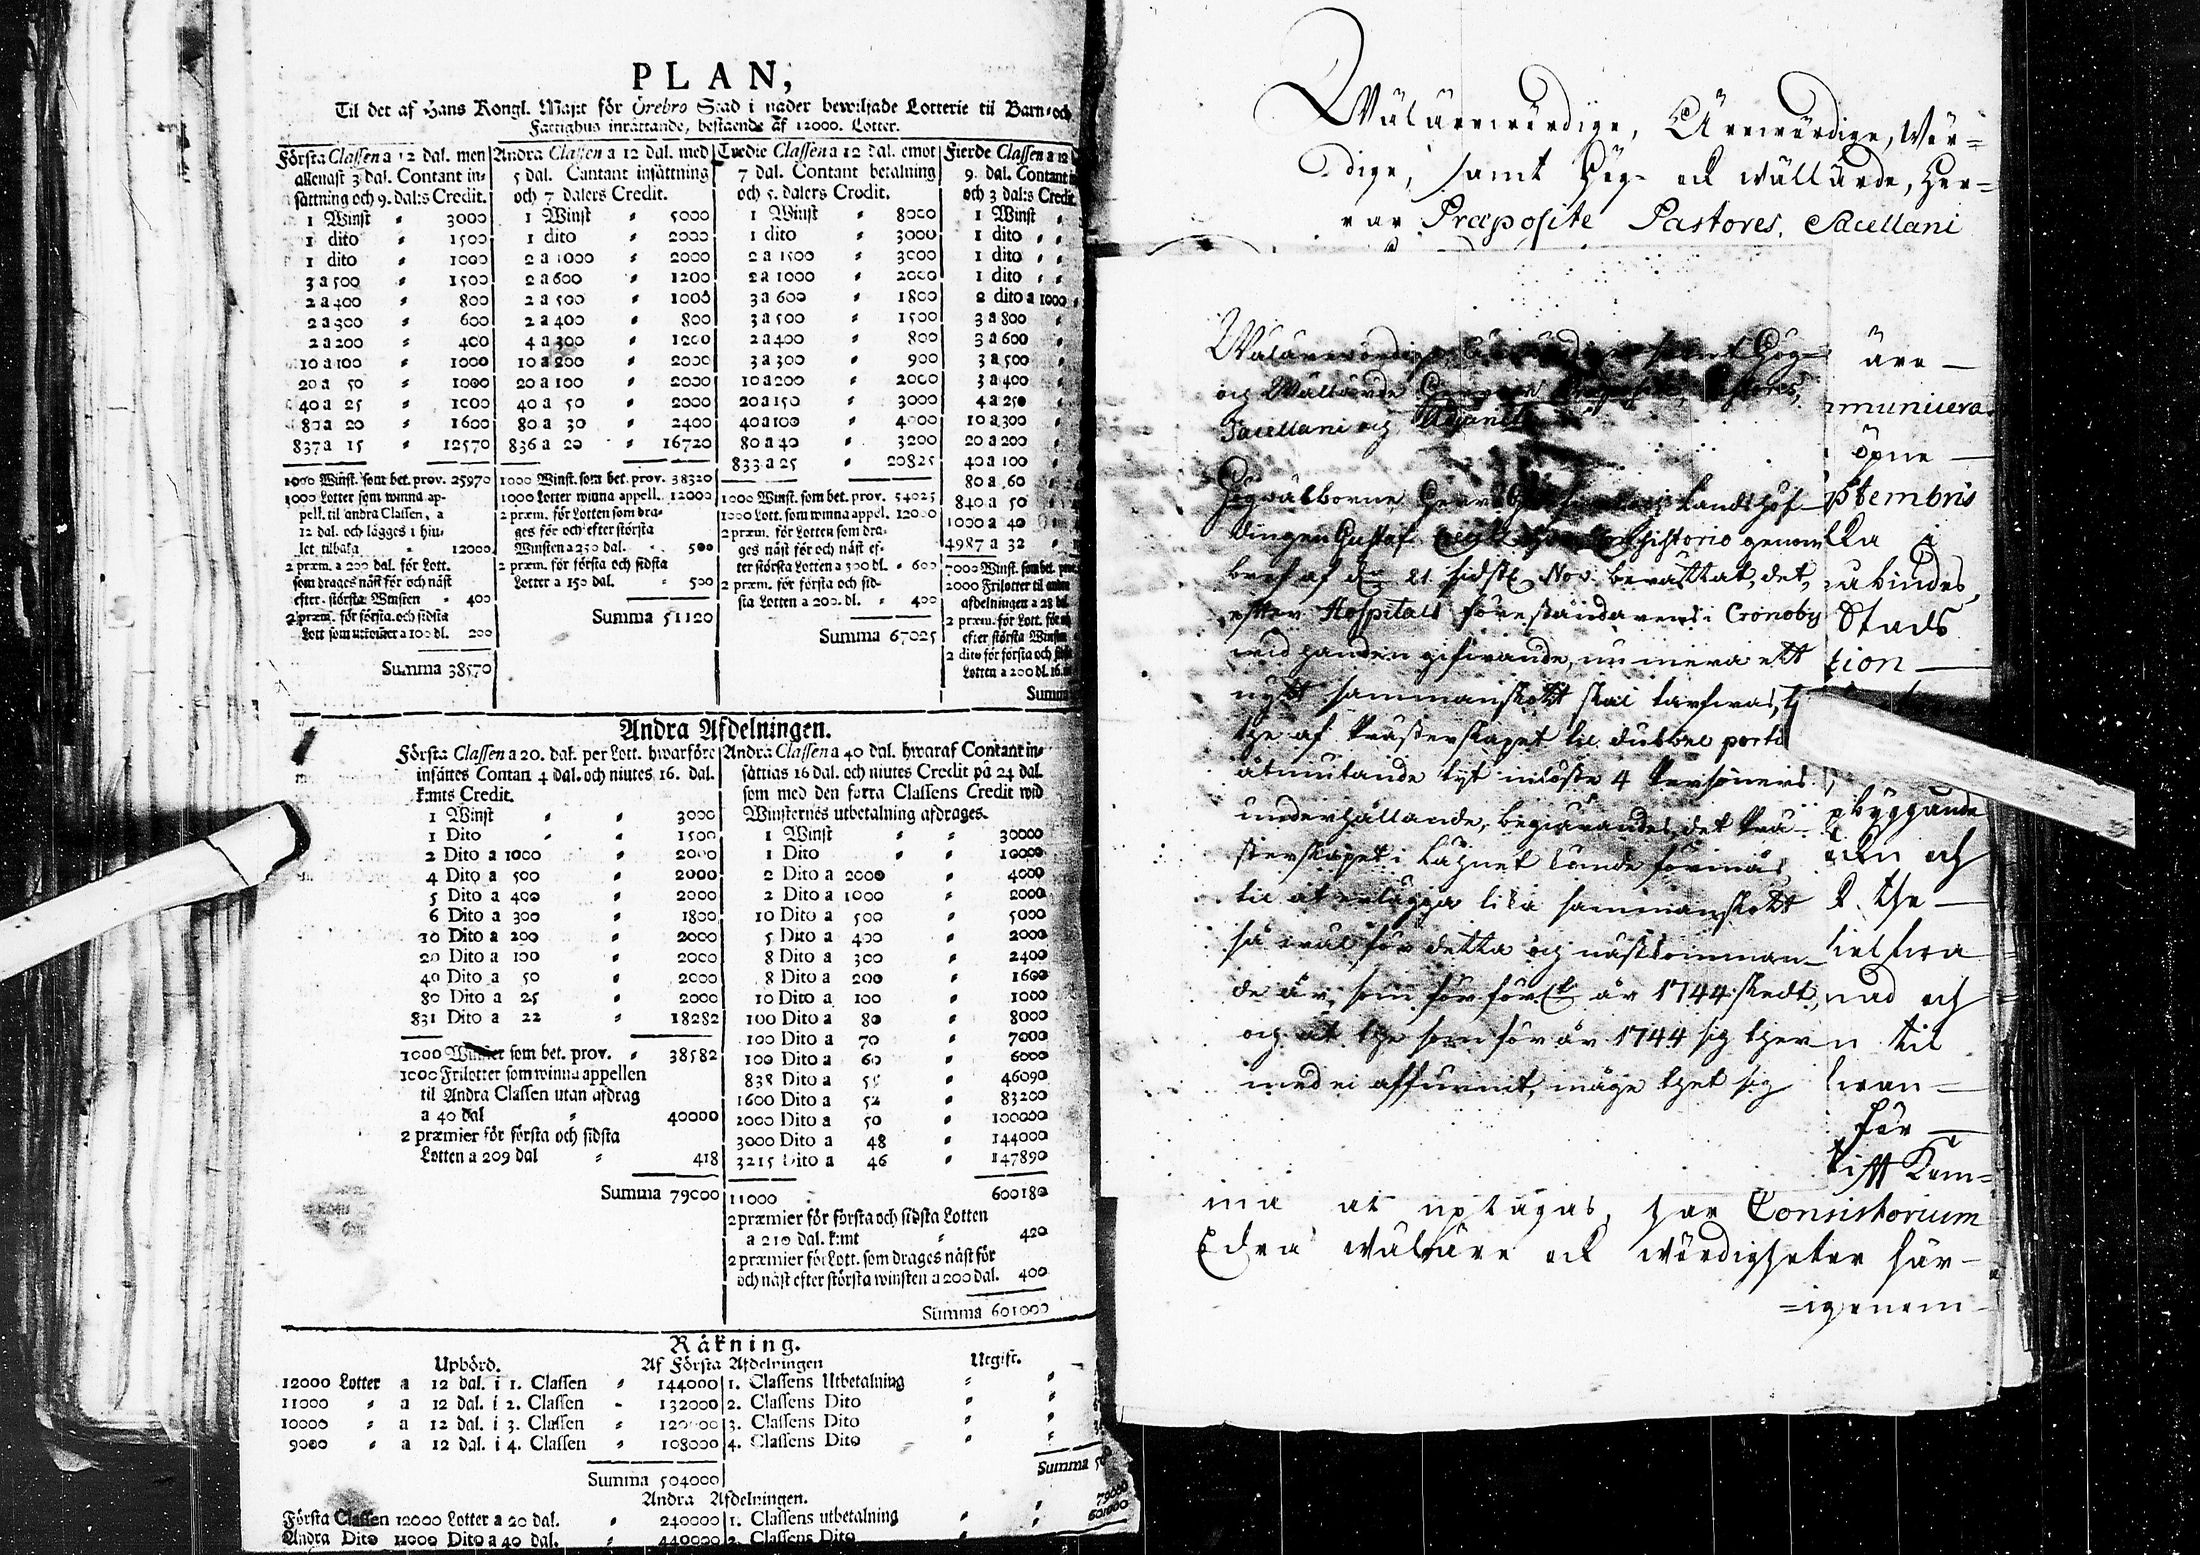 PLAN,
Til det af Hans Kongl. Maj:t för Örebro Stad i nåder bewiljade Lotterie til Barn- och
Fattighus inrättande, bestående af 12000. Lotter.
Första Classen a 12 dal. men
allenast 3 dal. Contant in-
sättning och 9. dal:s Credit.
1 Winst 3000
1 dito 1500
1 dito 1000
3 a 500 1500
2 a 400 800
2 a 300 600
2 a 200 400
10 a 100 1000
20 a 50 1000
40 a 25 1000
80 a 20 1600
837 a 15 12570
1000 Winst. som bet. prov. 25970
1000 Lotter som winna ap-
pell. til andra Classen, a
12 dal. och lägges i hju-
let tilbaka 12000
2 præm. a 200 dal. för Lott.
som drages näst för och näst
efter största Winsten 400
2 præm. för första och sidsta
Lott som utkom̃er a 100 dl. 200
Summa 38570
Andra Classen a 12 dal. med
5 dal. Contant insättning
och 7 dalers Credit.
1 Winst 5000
1 dito 2000
2 a 1000 2000
2 a 600 1200
2 a 500 1000
2 a 400 800
4 a 300 1200
10 a 200 2000
20 a 100 2000
40 a 50 2000
80 a 30 2400
836 a 20 16720
1000 Winst. som bet. prov. 38320
1000 Lotter winna appell. 12000
2 præm. för Lotten som dra-
ges för och efter största
Winsten a 250 dal. 500
2 præm. för första och sidsta
Lotter a 150 dal. 500
Summa 51120
Tredie Classen a 12 dal. emot
7 dal. Contant betalning
och 5. dalers Credit.
1 Winst 8000
1 dito 3000
2 a 1500 3000
2 a 1000 2000
3 a 600 1800
3 a 500 1500
2 a 400 800
3 a 300 900
10 a 200 2000
20 a 150 3000
40 a 100 4000
80 a 40 3200
833 a 25 20825
1000 Winst. som bet. prov. 54025
1000 Lott. som winna appel. 12000
2 præm. för Lotten som dra-
ges näst för och näst ef-
ter största Lotten a 300 dl. 600
2 præm. för första och sid-
sta Lotten a 200. dl. 400
Summa 67025
Fierde Classen a 12
9. dal. Contant
och 3 dal:s Credit.
1 Winst
1 dito
1 dito
1 dito
2 dito a 1000
3 a 800
3 a 600
3 a 500
3 a 400
4 a 250
10 a 300
20 a 200
40 a 100
80 a 60
840 a 50
1000 a 40
4987 a 32
7000 Winst. som bet.
2000 Frilotter til
afdelningen a 28
2 præm. för Lott. för
efter största
2 dito för första och
Lotten a 200 dl.
Andra Afdelningen.
Första Classen a 20. dal. per Lott. hwarföre
insättes Contan 4 dal. och niutes 16. dal.
k:mts Credit.
1 Winst 3000
1 Dito 1500
2 Dito a 1000 2000
4 Dito a 500 2000
5 Dito a 400 2000
6 Dito a 300 1800
10 Dito a 200 2000
20 Dito a 100 2000
40 Dito a 50 2000
80 Dito a 25 2000
831 Dito a 22 18282
1000 som bet. prov. 38582
1000 Frilotter som winna appellen
til Andra Classen utan afdrag
a 40 dal 40000
2 præmier för första och sidsta
Lotten a 209 dal 418
Summa 79000
Andra Classen a 40 dal. hwaraf Contant in-
sättias 16 dal. och niutes Credit på 24 dal.
som med den förra Classens Credit wid
Winsternes utbetalning afdrages.
1 Winst 30000
1 Dito 10000
2 Dito a 2000 4000
2 Dito a 1000 2000
10 Dito a 500 5000
5 Dito a 400 2000
8 Dito a 300 2400
8 Dito a 200 1600
10 Dito a 100 1000
100 Dito a 80 8000
100 Dito a 70 7000
100 Dito a 60 6000
838 Dito a 55 46090
1600 Dito a 52 83200
2000 Dito a 50 100000
3000 Dito a 48 144000
3215 Dito a 46 147890
11000 600180
2 præmier för första och sidsta Lotten
a 210 dal. k:mt 420
2 præmier för Lott. som drages näst för
och näst efter största winsten a 200 dal. 400
Summa 601000
Räkning.
Upbörd. Af Första Afdelningen Utgift.
12000 Lotter a 12 dal. i 1. Classen 144000 1. Classens Utbetalning
11000 a 12 dal. i 2. Classen 132000 2. Classens Dito
10000 a 12 dal. i 3. Classen 120000 3. Classens Dito
9000 a 12 dal. i 4. Classen 108000 4. Classens Dito
Summa 504000 Summa
Andra Afdelningen.
Första Classen 12000 Lotter a 20 dal. 240000 1. Classens utbetalning 79000
Andra Dito 11000 Dito a 40 dal. 440000 2. Classens Dito 601000
Wälärewördige, Ärewördige, Wör=
dige, samt Hög- och wällärde, Her=
rar Præposite Pastores, Sacellani
Wälärewördige samt Hög-
og Wällärde
Sacellani og Adjuncti
Högwälborne Herr Landshöf-
dingen Gustaf Consistorio genom
bref af d. 21 sidstl. Nov. berättat, det,
efter Hospitals föreståndarens i Cronoby
wid handen gifwande, nu mera ett
nytt sammanskott skal tarfwas,
the af Prästerskapet til dubbel porti
åtniutande tyt inlöste 4 Personers
underhållande, begiärandes det Prä-
sterskapet i Lähnet kunde förmås
til at erlägga lika sammanskott
så wäl för detta og nästkomman-
de år, som för förl. år 1744 skedt,
og at the som för år 1744 sig ther
med ei affunnit, måge thet sig
äre
municera
öpne
ptembris
lka i
Stads
tion
pbyggande
och
k. the
nad och
n til
för
tifft Kam=
ma at uptagas, har Consistorium
Edra wälähre och wördigheter här=
=igenom